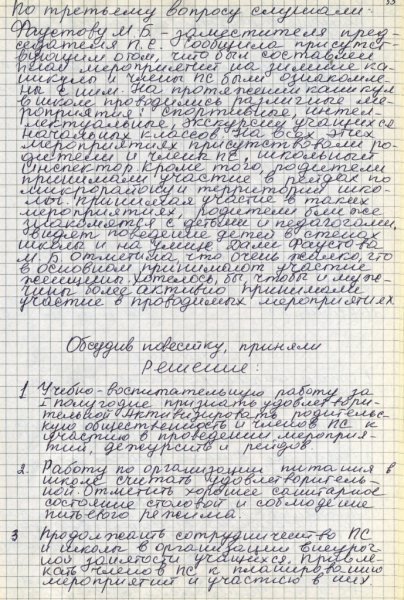 По третьему вопросу слушали:
Фаустову М.Б. - заместителя пред-
седателя П.С. Сообщила присутст-
вующим о том, что был составлен
план мероприятий на зимние ка-
никулы и члены ПС были ознакомле-
ны с ним. На протяжении каникул
в школе проводились различные ме-
роприятия: спортивные, интел-
лектуальные, экскурсии учащихся
начальных классов. На всех этих
мероприятиях присутствовали ро-
дители и члены ПС, школьный
инспектор. Кроме того, родители
принимали участие в рейдах по
микрорайону и территории шко-
лы. Принимая участие в таких
мероприятиях, родители ближе
знакомятся с детьми и педагогами,
видят поведение детей в стенах
школы и на улице. Далее Фаустова
М.Б. отметила, что очень жалко, что
в основном принимают участие
женщины. Хотелось бы, чтобы и муж-
чины более активно принимали
участие в проводимых мероприятиях
Обсудив повестку, приняли
Решение:
1 Учебно-воспитательную работу за
I полугодие признать удовлетвори-
тельной. Активизировать родительс-
кую общественность и членов ПС к
участию в проведении мероприя-
тий, дежурств и рейдов.
2. Работу по организации питания в
школе считать удовлетворитель-
ной. Отметить хорошее санитарное
состояние столовой и соблюдение
питьевого режима.
3 Продолжать сотрудничество ПС
и школы в организации внеуроч-
ной занятости учащихся. Привле-
кать членов ПС к планированию
мероприятий и участию в них.